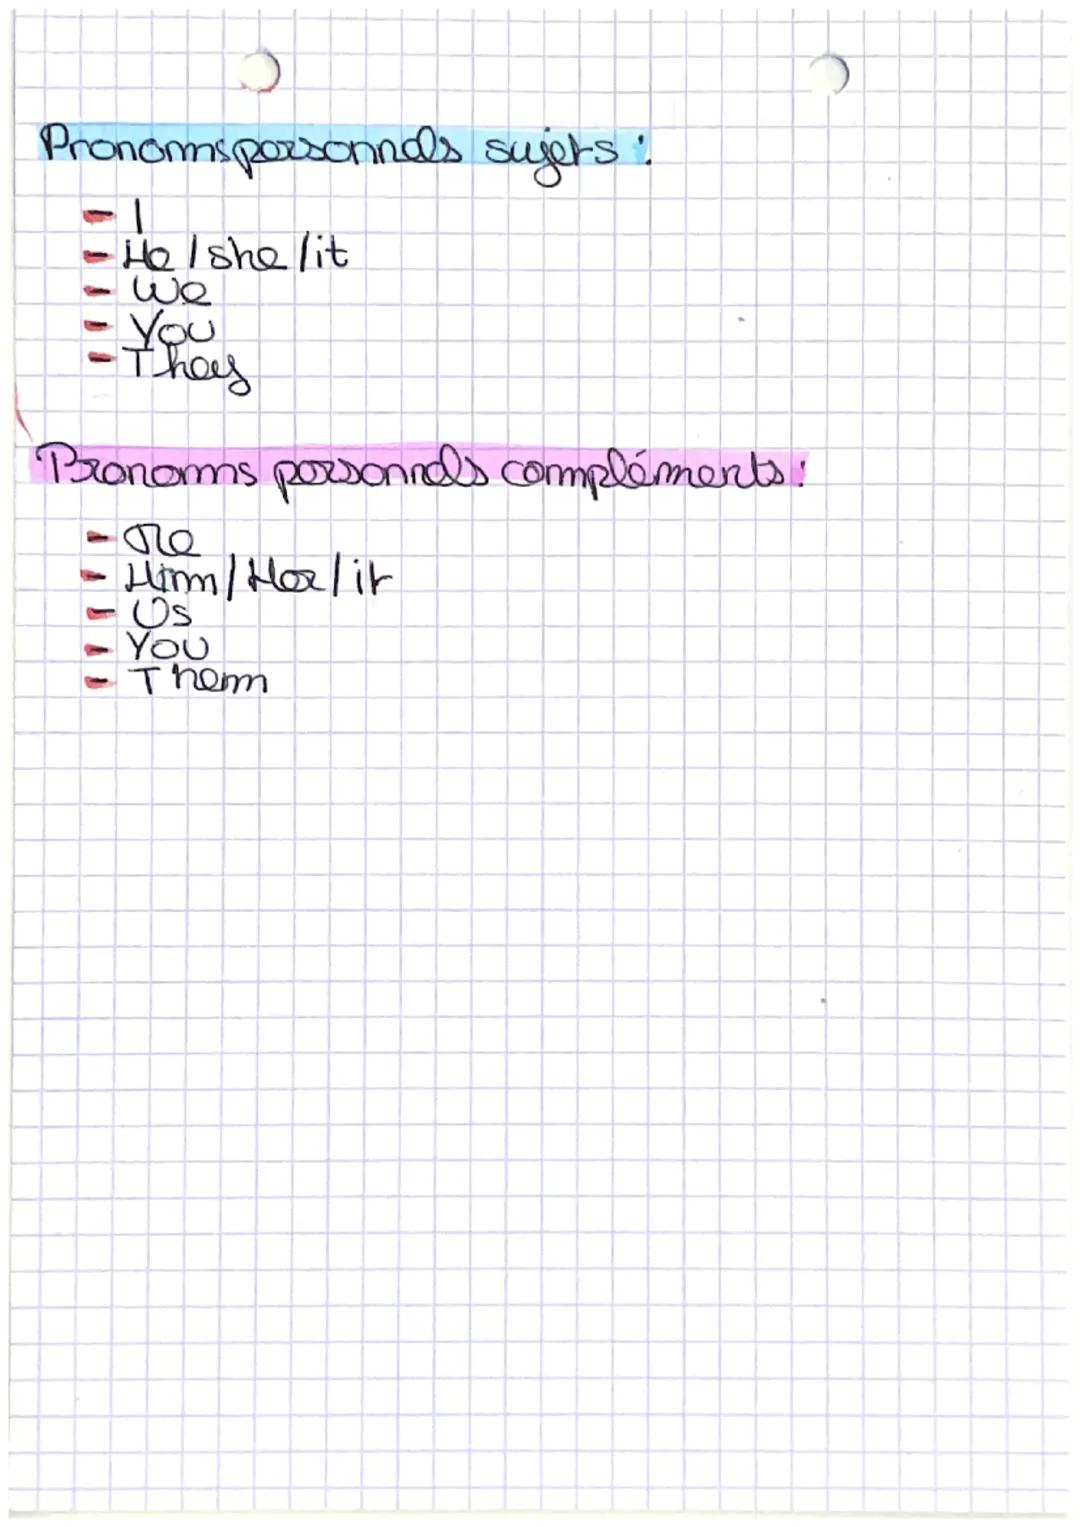 Pronoms personnels sujets :
- I
- He / she / it
- We
- You
- They
Pronoms personnels compléments :
- Me
- Him / Her / it
- Us
- You
- Them